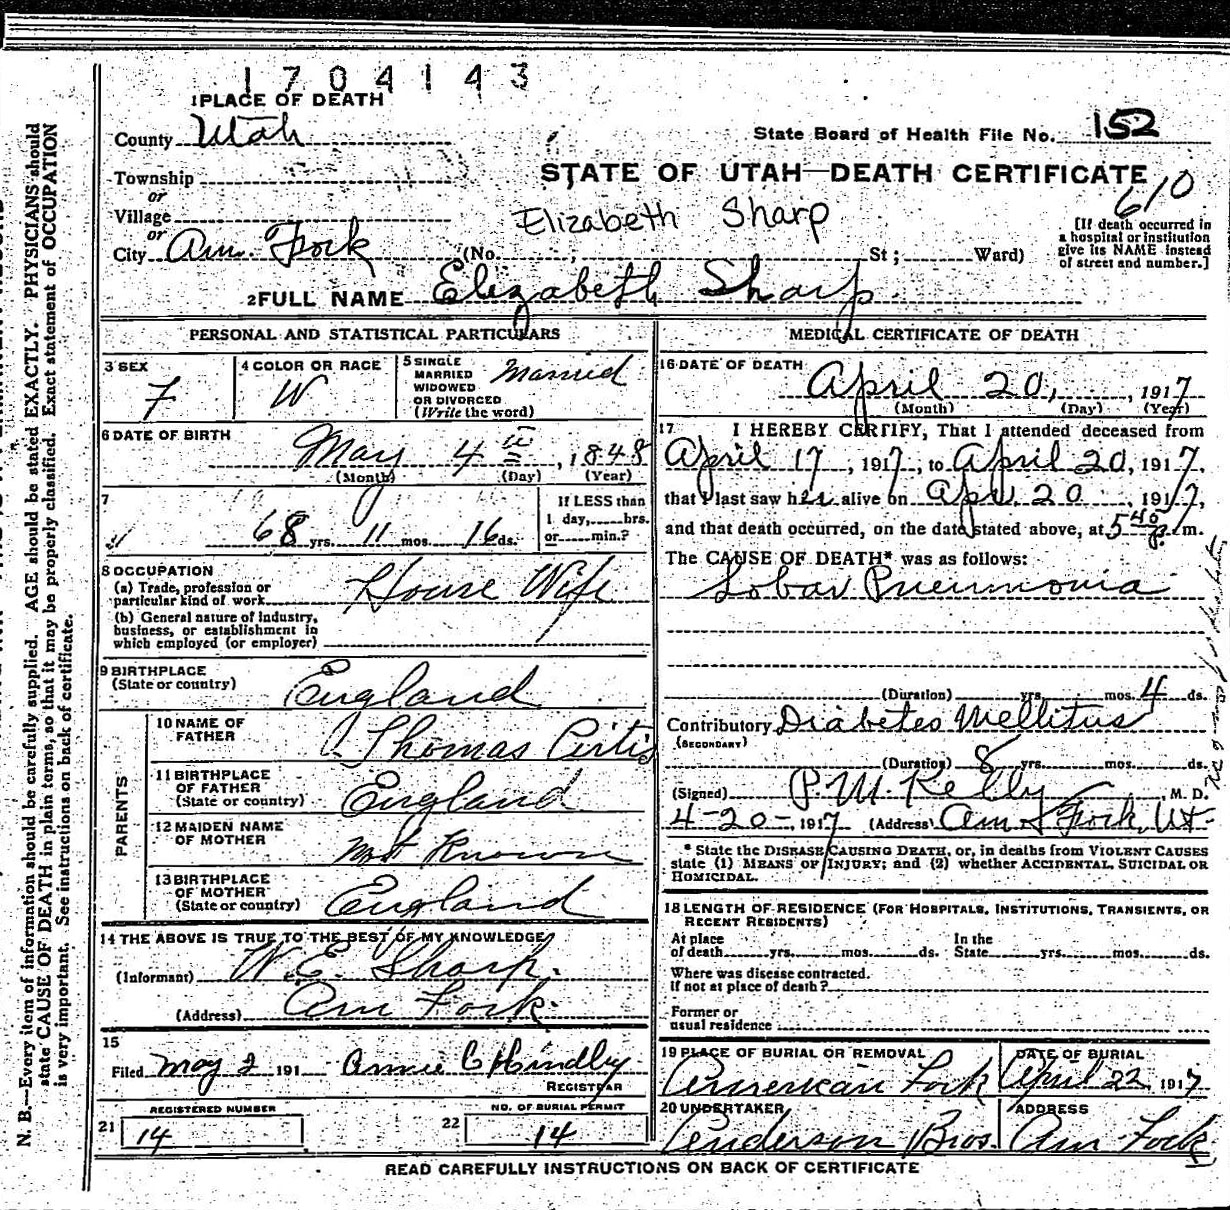 1704143
1 PLACE OF DEATH
County Utah
State Board of Health File No. 152
Township
or
Village
or
City Am. Fork (No. ; St; Ward)
STATE OF UTAH—DEATH CERTIFICATE
610
Elizabeth Sharp
[If death occurred in
a hospital or institution
give its NAME instead
of street and number.]
2 FULL NAME Elizabeth Sharp
PERSONAL AND STATISTICAL PARTICULARS
3 SEX
F
4 COLOR OR RACE
W
5 SINGLE
MARRIED
WIDOWED
OR DIVORCED
(Write the word)
Married
6 DATE OF BIRTH
May 4th, 1848
(Month) (Day) (Year)
7
68 yrs. 11 mos. 16 ds.
If LESS than
1 day, hrs.
or min.?
8 OCCUPATION
(a) Trade, profession or
particular kind of work House Wife
(b) General nature of industry,
business, or establishment in
which employed (or employer)
9 BIRTHPLACE
(State or country) England
PARENTS
10 NAME OF
FATHER Thomas Curtis
11 BIRTHPLACE
OF FATHER
(State or country) England
12 MAIDEN NAME
OF MOTHER not Known
13 BIRTHPLACE
OF MOTHER
(State or country) England
14 THE ABOVE IS TRUE TO THE BEST OF MY KNOWLEDGE
(Informant) W.E. Sharp.
(Address) Am Fork.
15
Filed May 2 191 Annie C Hindley
REGISTRAR
REGISTERED NUMBER
21 14
NO. OF BURIAL PERMIT
22 14
MEDICAL CERTIFICATE OF DEATH
16 DATE OF DEATH
April 20, 1917
(Month) (Day) (Year)
17 I HEREBY CERTIFY, That I attended deceased from
April 17, 1917, to April 20, 1917,
that I last saw her alive on Apr. 20, 1917,
and that death occurred, on the date stated above, at 5 40 p. m.
The CAUSE OF DEATH* was as follows:
Lobar Pneumonia
(Duration) yrs. mos. 4 ds.
Contributory Diabetes Mellitus
(SECONDARY)
(Duration) 8 yrs. mos. ds.
(Signed) P.M. Kelly M. D.
4-20-, 1917 (Address) Am Fork, Ut.
* State the DISEASE CAUSING DEATH, or, in deaths from VIOLENT CAUSES
state (1) MEANS OF INJURY; and (2) whether ACCIDENTAL, SUICIDAL OR
HOMICIDAL.
18 LENGTH OF RESIDENCE (FOR HOSPITALS, INSTITUTIONS, TRANSIENTS, OR
RECENT RESIDENTS)
At place
of death yrs. mos. ds.
In the
State yrs. mos. ds.
Where was disease contracted.
if not at place of death?
Former or
usual residence
19 PLACE OF BURIAL OR REMOVAL
American Fork
DATE OF BURIAL
April 22, 1917
20 UNDERTAKER
Anderson Bros.
ADDRESS
Am Fork
READ CAREFULLY INSTRUCTIONS ON BACK OF CERTIFICATE
N. B.—Every item of information should be carefully supplied. AGE should be stated EXACTLY. PHYSICIANS should
state CAUSE OF DEATH in plain terms, so that it may be properly classified. Exact statement of OCCUPATION
is very important. See instructions on back of certificate.